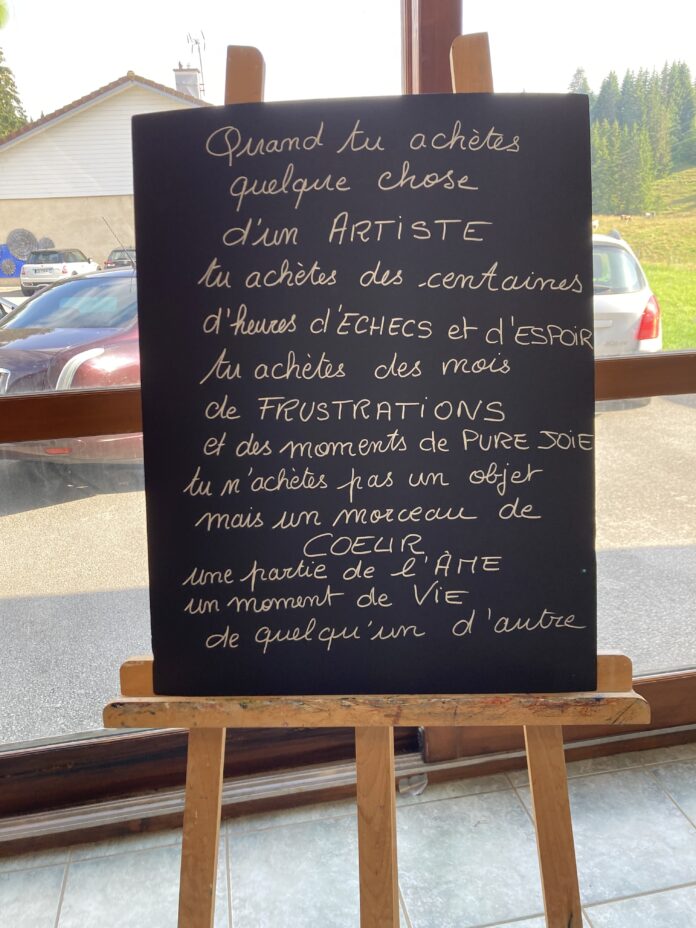 Quand tu achètes
quelque chose
d'un ARTISTE
tu achètes des centaines
d'heures d'ECHECS et d'ESPOIR
tu achètes des mois
de FRUSTRATIONS
et des moments de PURE JOIE
tu n'achètes pas un objet
mais un morceau de
COEUR
une partie de l'ÂME
un moment de VIE
de quelqu'un d'autre